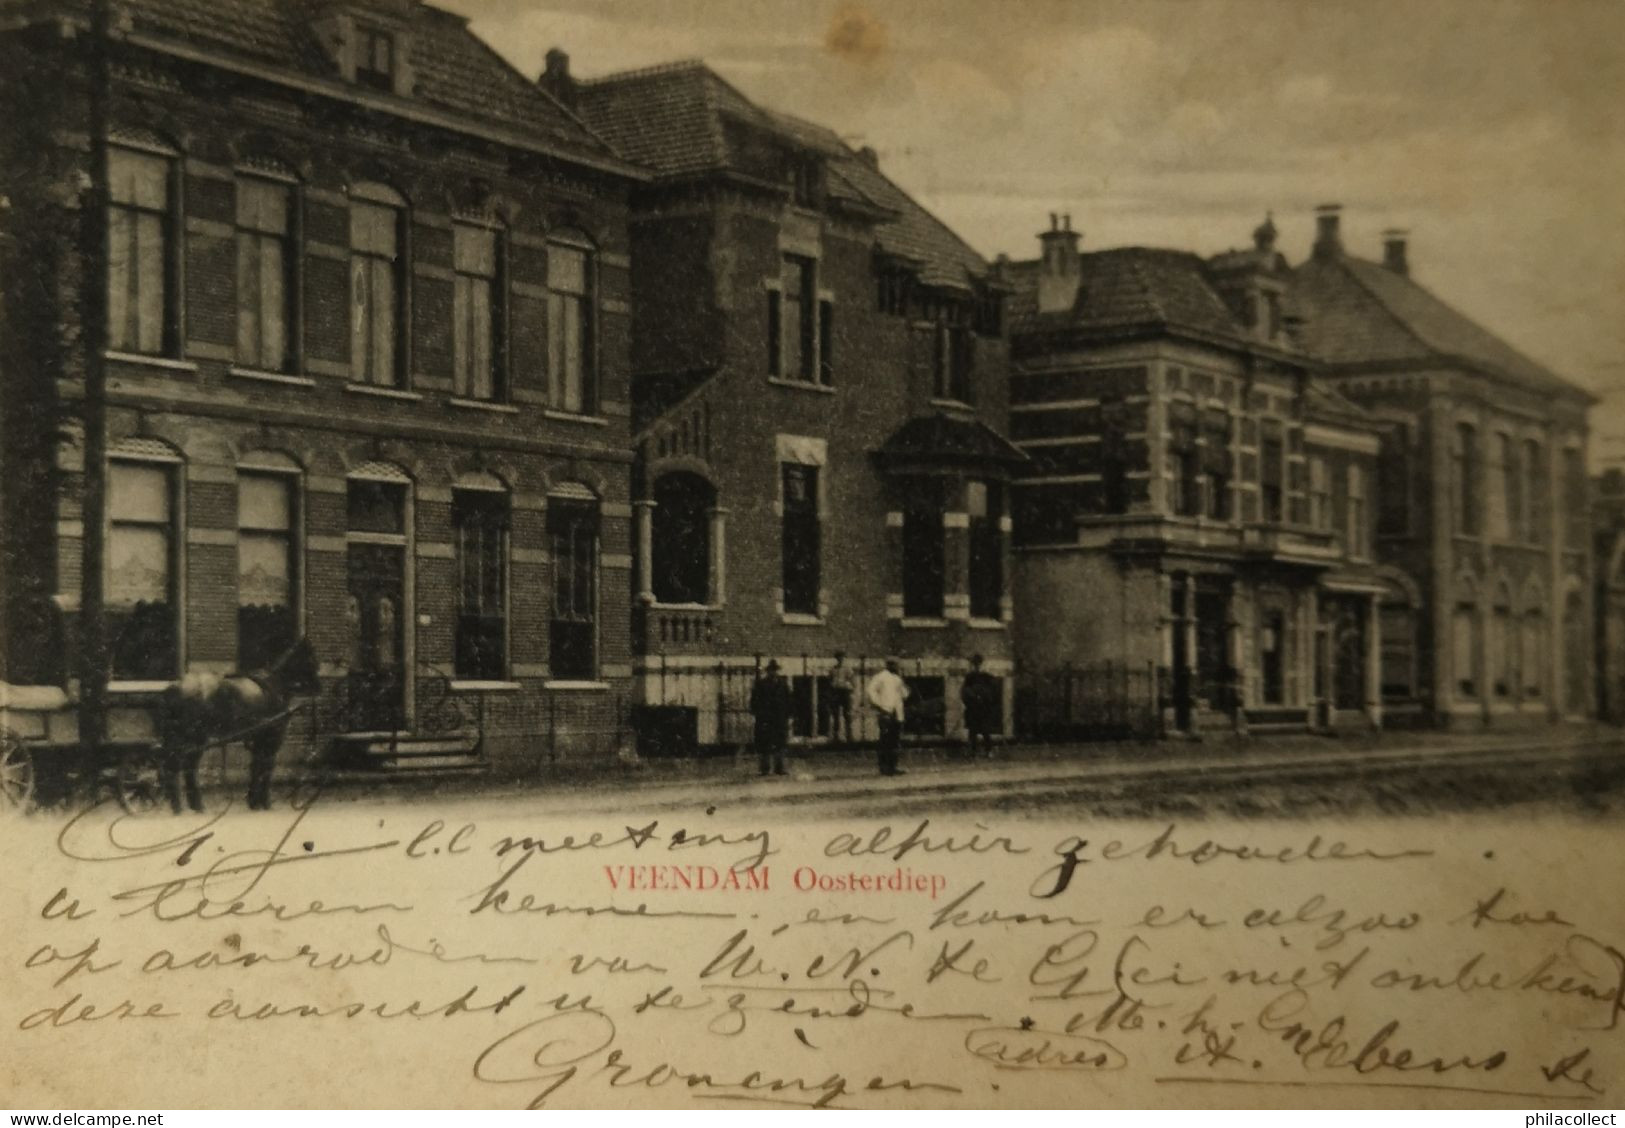 G. J. l.l meeting alhier gehouden.
VEENDAM Oosterdiep
u leeren kennen. en kom er alzoo toe
op aanraden van W. N. te G (ci niet onbekend)
deze aansicht u te zenden. M. h.
Groningen. adres A. Ebens te
www.delcampe.net
philacollect